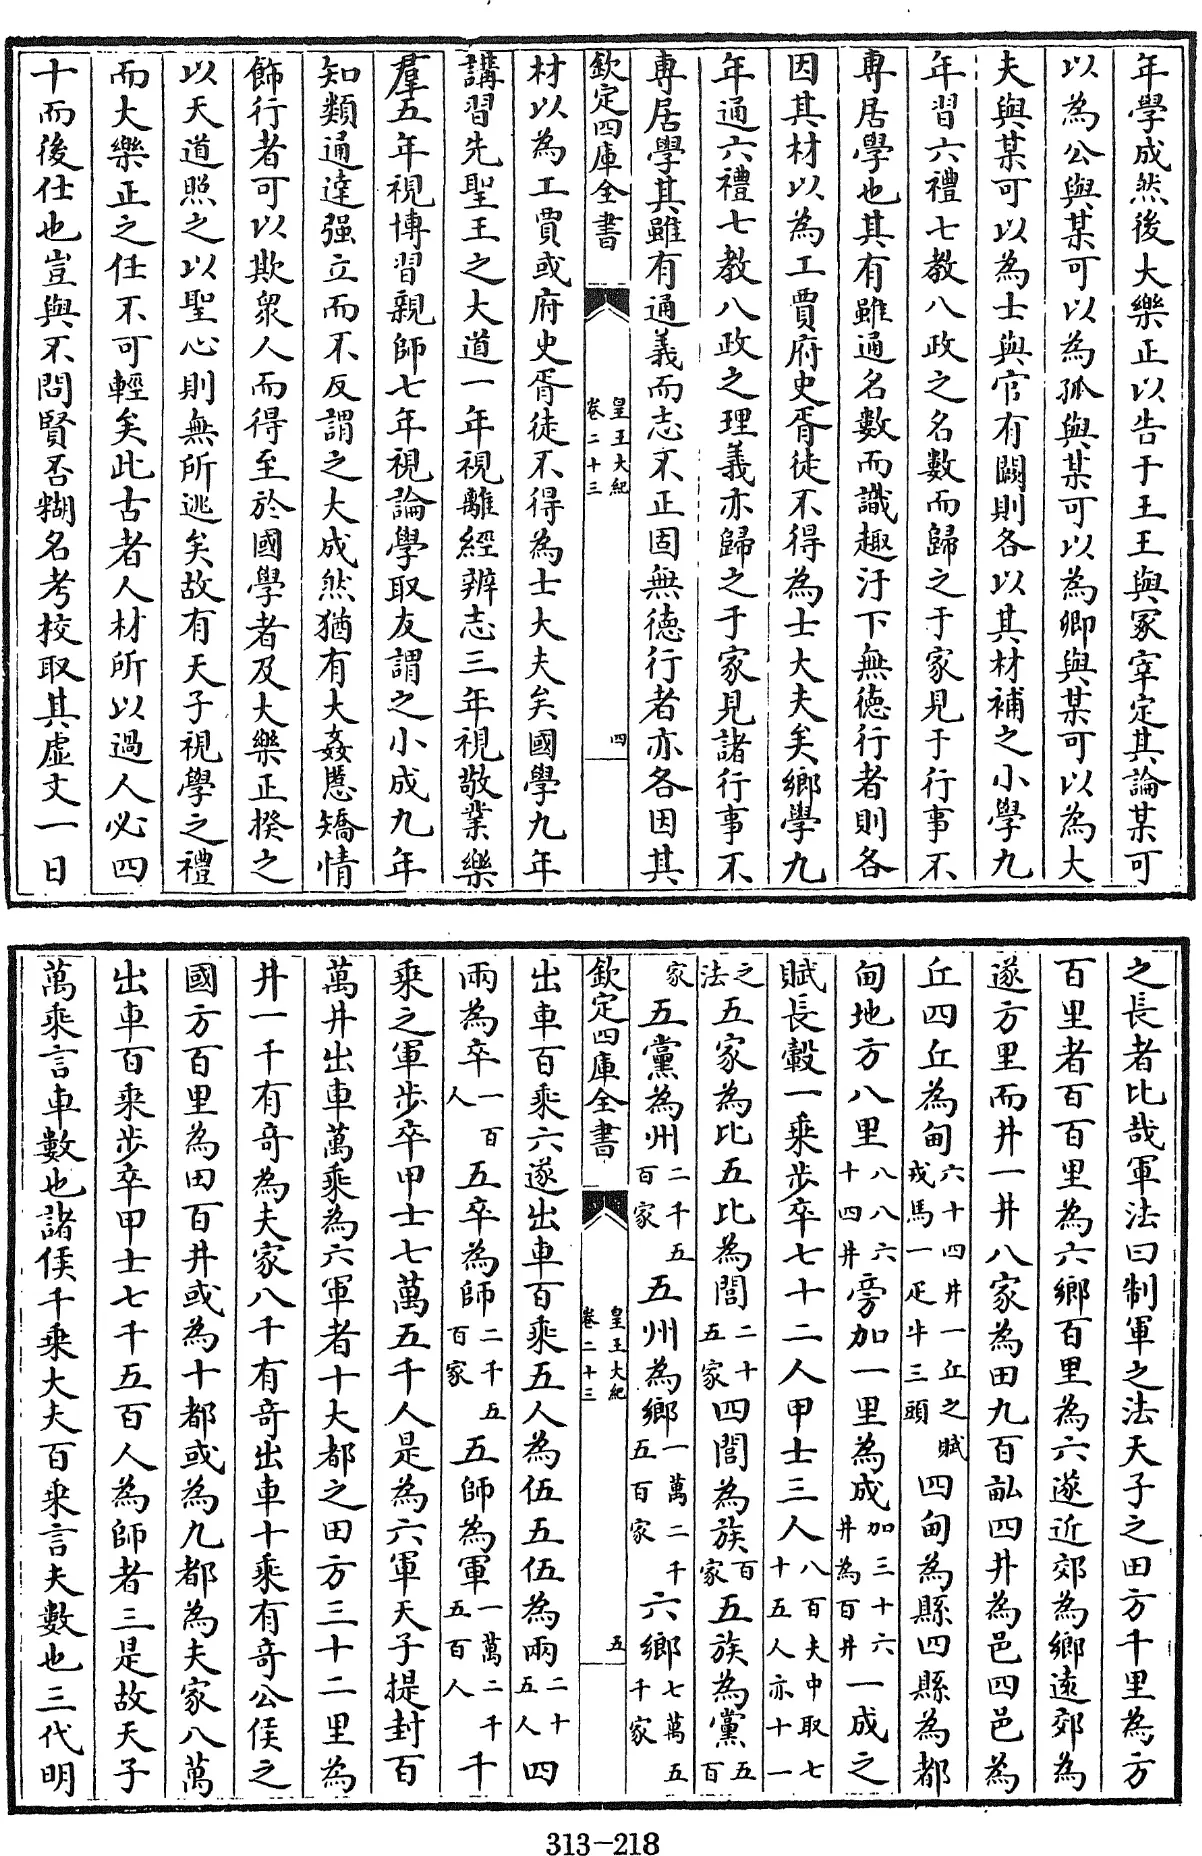 年學成然後大樂正以告于王王與冢宰定其論某可
以為公與某可以為孤與某可以為卿與某可以為大
夫與某可以為士與官有闕則各以其材補之小學九
年習六禮七教八政之名數而歸之于家見于行事不
專居學也其有雖通名數而識趣汙下無徳行者則各
因其材以為工賈府史胥徒不得為士大夫矣鄉學九
年通六禮七教八政之理義亦歸之于家見諸行事不
專居學其雖有通義而志不正固無徳行者亦各因其
欽定四庫全書 皇王大紀 卷二十三 四
材以為工賈或府史胥徒不得為士大夫矣國學九年
講習先聖王之大道一年視離經辨志三年視敬業樂
羣五年視博習親師七年視論學取友謂之小成九年
知類通達强立而不反謂之大成然猶有大姦慝矯情
飾行者可以欺衆人而得至於國學者及大樂正揆之
以天道照之以聖心則無所逃矣故有天子視學之禮
而大樂正之任不可輕矣此古者人材所以過人必四
十而後仕也豈與不問賢否糊名考校取其虛文一日
之長者比哉軍法曰制軍之法天子之田方千里為方
百里者百百里為六鄉百里為六遂近郊為鄉逺郊為
遂方里而井一井八家為田九百畝四井為邑四邑為
丘四丘為甸六十四井一丘之賦戎馬一疋牛三頭四甸為縣四縣為都
甸地方八里八八六十四井旁加一里為成加三十六井為百井一成之
賦長轂一乘步卒七十二人甲士三人八百夫中取七十五人亦十一
之法五家為比五比為閭二十五家四閭為族百家五族為黨五百
家五黨為州二千五百家五州為鄉一萬二千五百家六鄉七萬五千家
欽定四庫全書 皇王大紀 卷二十三 五
出車百乘六遂出車百乘五人為伍五伍為兩二十五人四
兩為卒一百人五卒為師二千五百家五師為軍一萬二千五百人千
乘之軍步卒甲士七萬五千人是為六軍天子提封百
萬井出車萬乘為六軍者十大都之田方三十二里為
井一千有奇為夫家八千有奇出車十乘有奇公侯之
國方百里為田百井或為十都或為九都為夫家八萬
出車百乘步卒甲士七千五百人為師者三是故天子
萬乘言車數也諸侯千乘大夫百乘言夫數也三代明
313-218